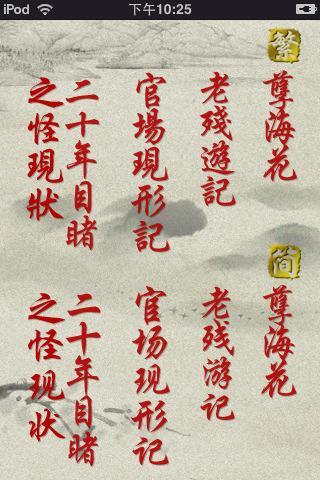 iPod 下午10:25
繁
孽海花
老殘遊記
官場現形記
二十年目睹
之怪現狀
简
孽海花
老残游记
官场现形记
二十年目睹
之怪现状